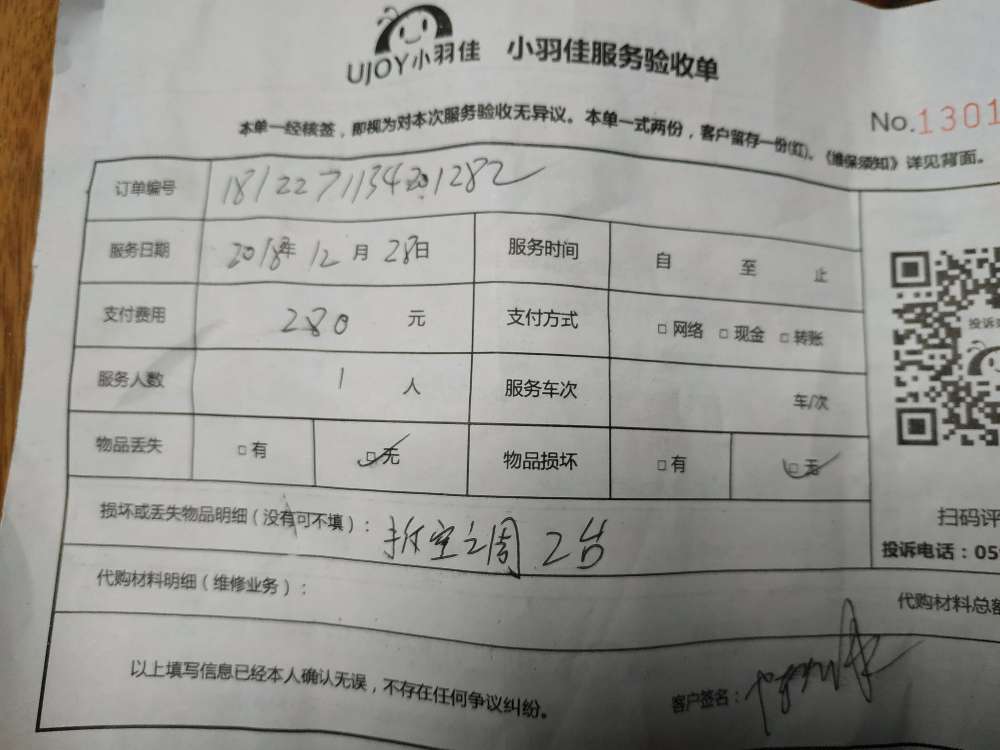 UJOY小羽佳 小羽佳服务验收单
No.1301
本单一经核签，即视为对本次服务验收无异议。本单一式两份，客户留存一份(红)。《维保须知》详见背面。
订单编号 1812271134201282
服务日期 2018年 12月 28日 服务时间 自 至 止
支付费用 280 元 支付方式 □网络 □现金 □转账
服务人数 1 人 服务车次 车/次
物品丢失 □有 □无 物品损坏 □有 □无
投诉
扫码评
损坏或丢失物品明细（没有可不填）： 拆空调 2台
投诉电话：05
代购材料明细（维修业务）：
代购材料总额
以上填写信息已经本人确认无误，不存在任何争议纠纷。
客户签名：